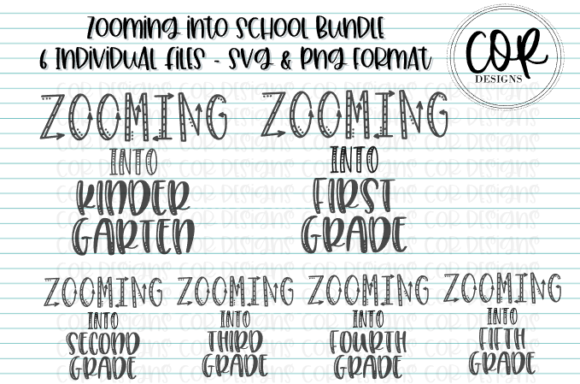 ZOOMING INTO SCHOOL BUNDLE
6 INDIVIDUAL FILES - SVG & PNG FORMAT
COR
DESIGNS
ZOOMING
INTO
KINDER
GARTEN
ZOOMING
INTO
FIRST
GRADE
ZOOMING
INTO
SECOND
GRADE
ZOOMING
INTO
THIRD
GRADE
ZOOMING
INTO
FOURTH
GRADE
ZOOMING
INTO
FIFTH
GRADE